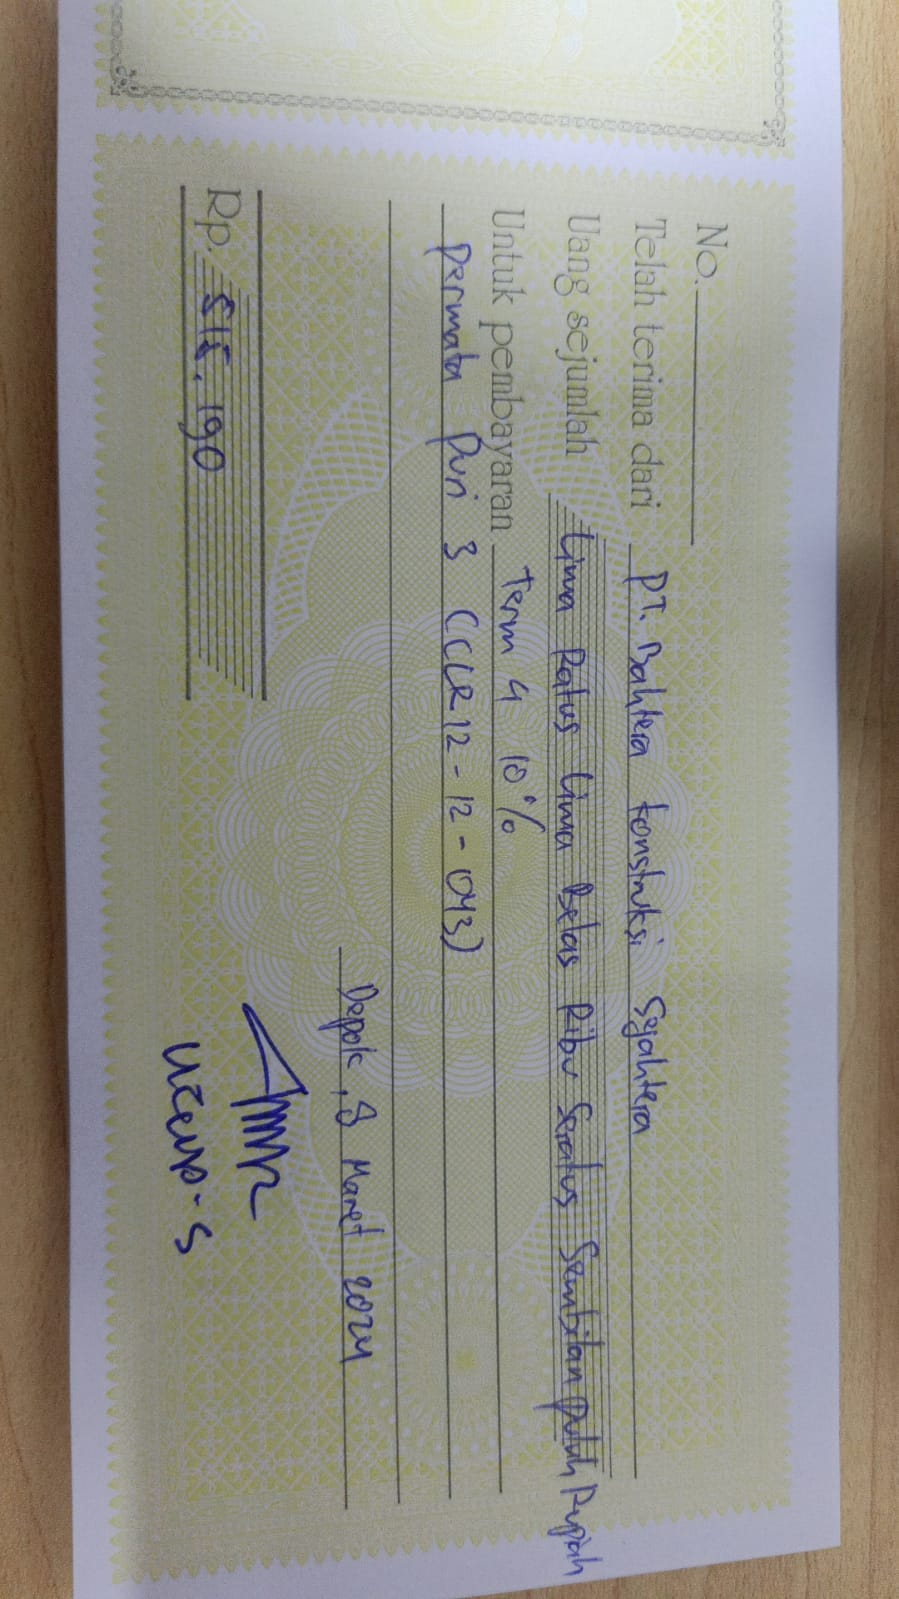 No.
Telah terima dari PT. Bahtera Konstruksi Sejahtera
Uang sejumlah Lima Ratus Lima Belas Ribu Seratus Sembilan puluh Rupiah
Untuk pembayaran Term 4 10%
Permata Puri 3 (CCLR12-12-043)
Depok, 8 Maret 2024
Rp. 515.190
Ucup-S